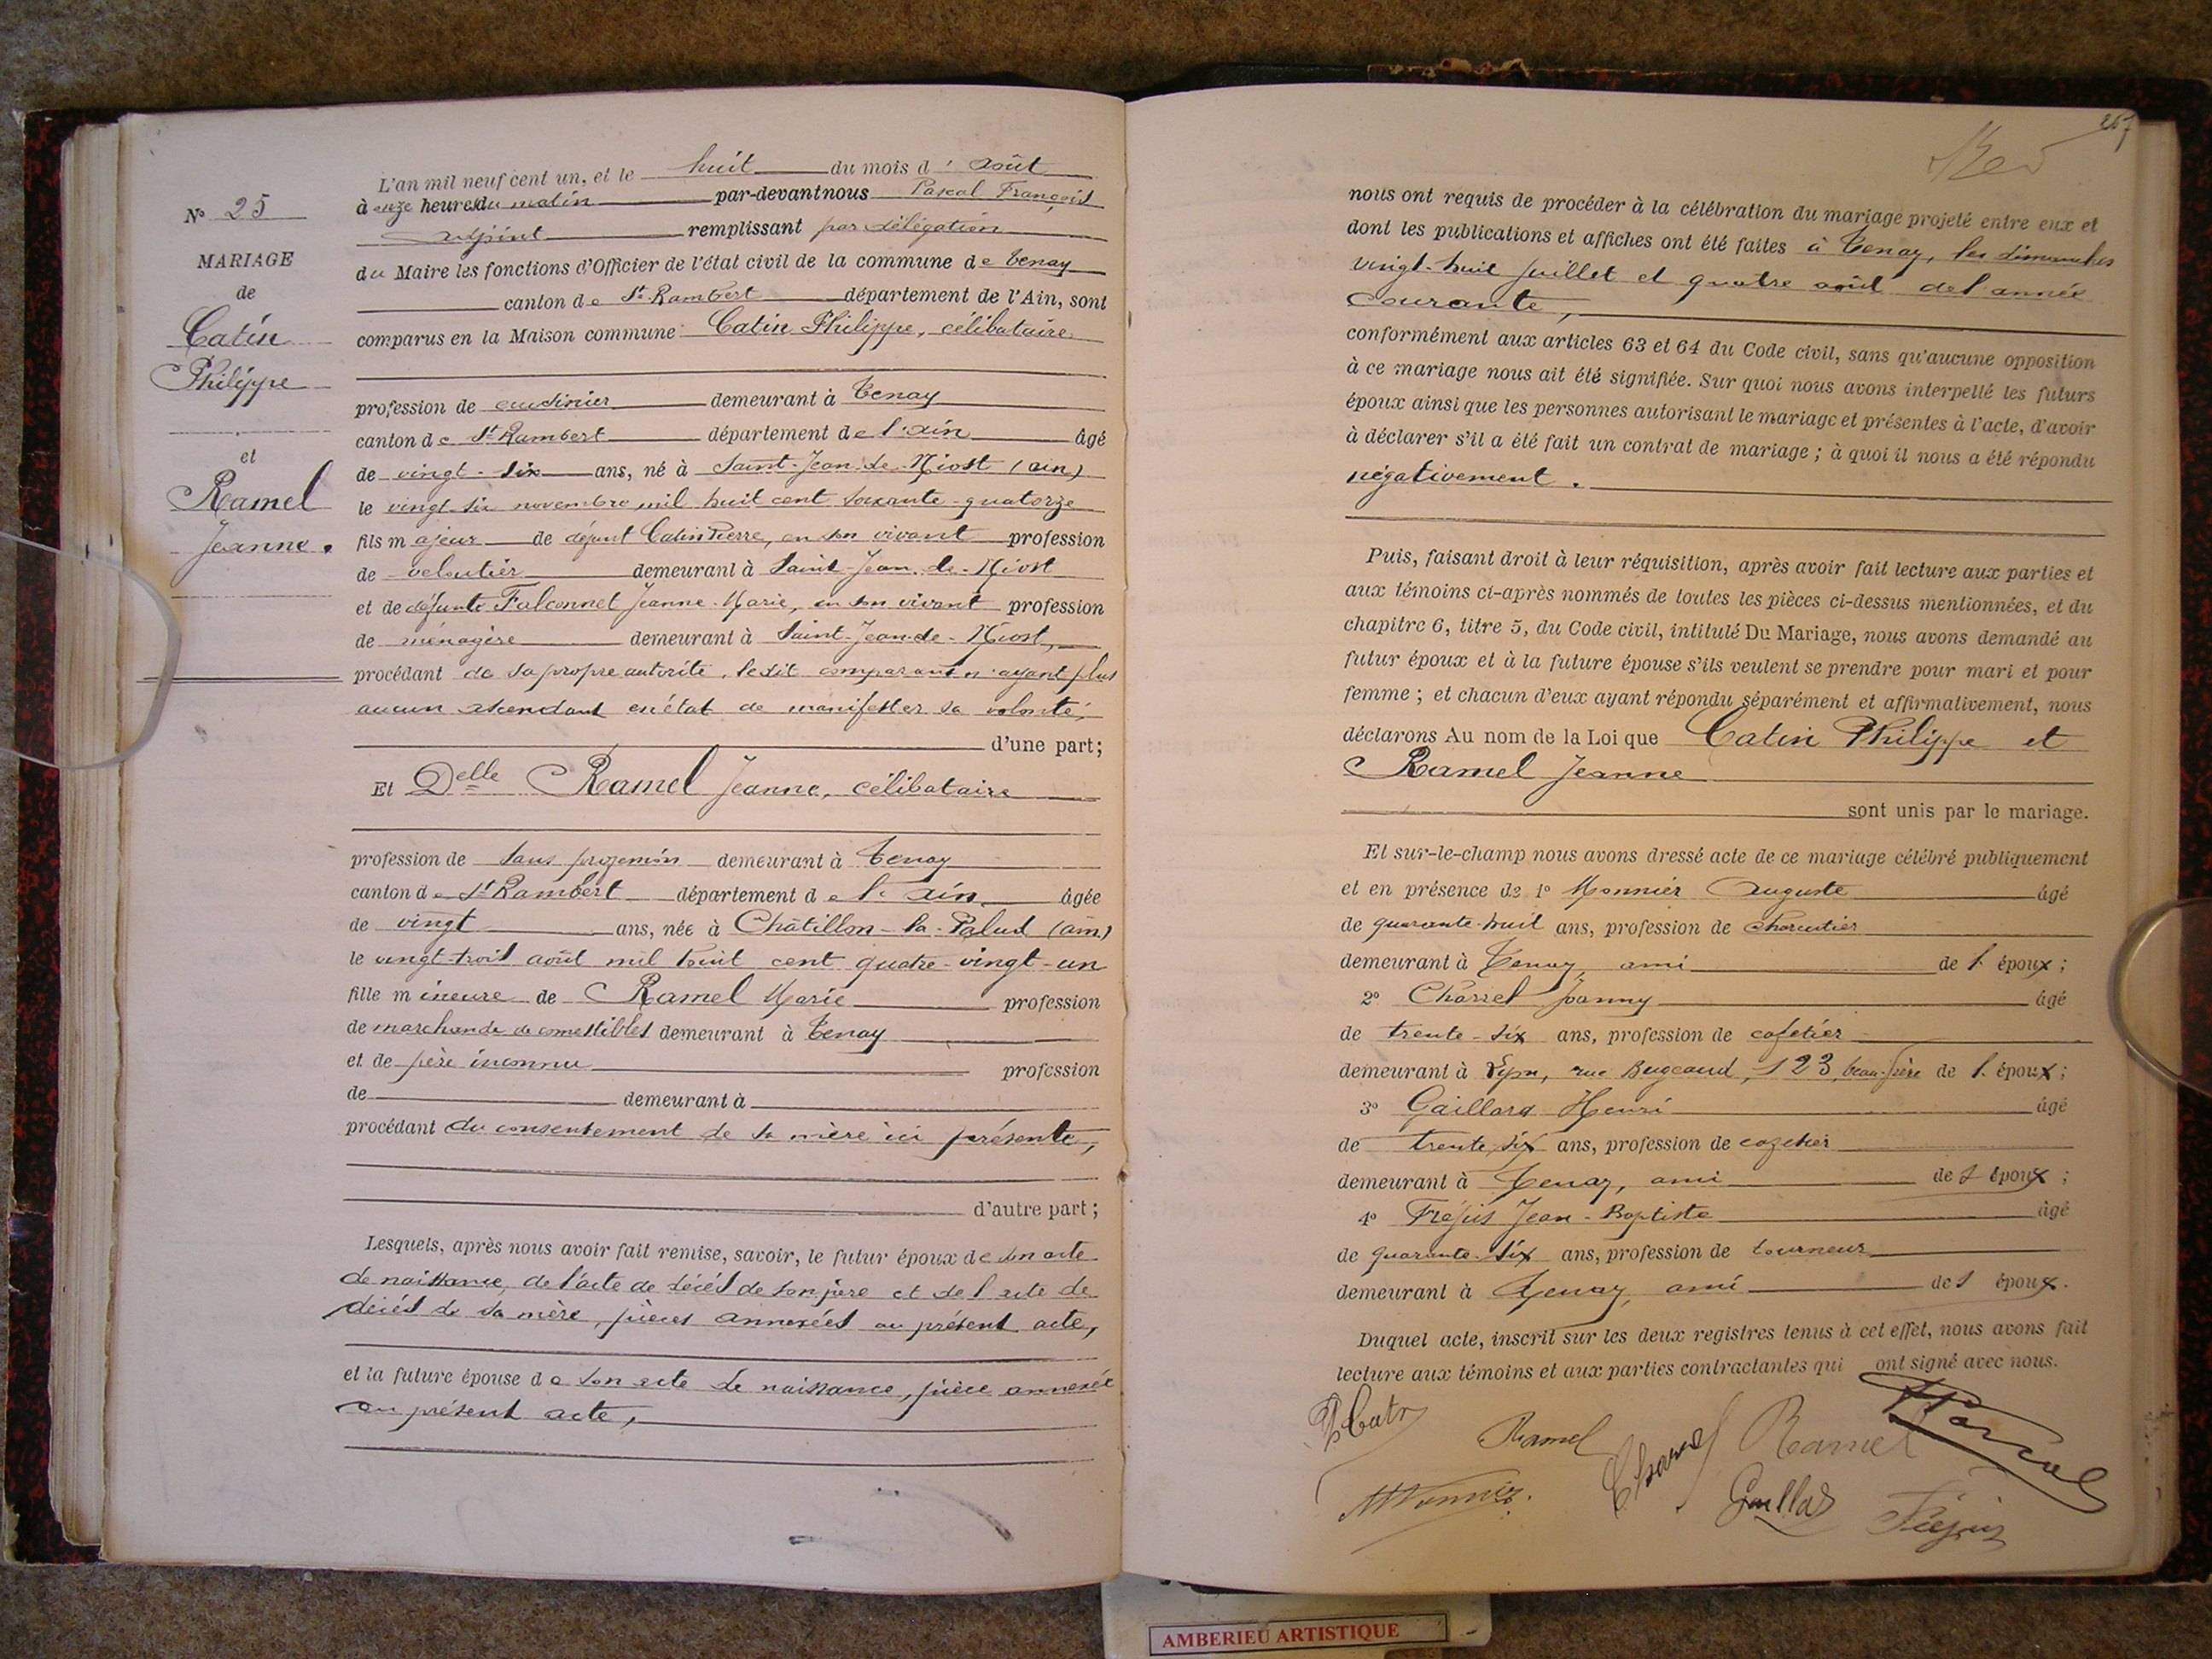 N° 25
MARIAGE
de
Catin
Philippe
et
Ramel
Jeanne.
L'an mil neuf cent un, et le huit du mois d' août
à onze heures du matin par-devant nous Pascal François
adjoint remplissant par délégation
du Maire les fonctions d'Officier de l'état civil de la commune de Tenay
canton de St-Rambert département de l'Ain, sont
comparus en la Maison commune Catin Philippe, célibataire
profession de cuisinier demeurant à Tenay
canton de St Rambert département de l'ain âgé
de vingt-six ans, né à Saint-Jean-de-Niost (ain)
le vingt-six novembre mil huit cent soixante-quatorze
fils majeur de défunt Catin Pierre, en son vivant profession
de veloutier demeurant à Saint-Jean-de-Niost
et de défunte Falconnet Jeanne-Marie, en son vivant profession
de ménagère demeurant à Saint-Jean-de-Niost,
procédant de sa propre autorité, ledit comparant n'ayant plus
aucun ascendant en état de manifester sa volonté,
d'une part;
Et Delle Ramel Jeanne, célibataire
profession de sans profession demeurant à Tenay
canton de St Rambert département de l'ain âgée
de vingt ans, née à Châtillon-la-Palud (ain)
le vingt-trois août mil huit cent quatre-vingt-un
fille mineure de Ramel Marie profession
de marchande de comestibles demeurant à Tenay
et de père inconnu profession
de demeurant à
procédant du consentement de sa mère ici présente,
d'autre part;
Lesquels, après nous avoir fait remise, savoir, le futur époux de son acte
de naissance, de l'acte de décès de son père et de l'acte de
décès de sa mère, pièces annexées au présent acte,
et la future épouse de son acte de naissance, pièce annexée
au présent acte,
nous ont requis de procéder à la célébration du mariage projeté entre eux et
dont les publications et affiches ont été faites à Tenay, les dimanches
vingt-huit juillet et quatre août de l'année
courante,
conformément aux articles 63 et 64 du Code civil, sans qu'aucune opposition
à ce mariage nous ait été signifiée. Sur quoi nous avons interpellé les futurs
époux ainsi que les personnes autorisant le mariage et présentes à l'acte, d'avoir
à déclarer s'il a été fait un contrat de mariage; à quoi il nous a été répondu
négativement.
Puis, faisant droit à leur réquisition, après avoir fait lecture aux parties et
aux témoins ci-après nommés de toutes les pièces ci-dessus mentionnées, et du
chapitre 6, titre 5, du Code civil, intitulé Du Mariage, nous avons demandé au
futur époux et à la future épouse s'ils veulent se prendre pour mari et pour
femme; et chacun d'eux ayant répondu séparément et affirmativement, nous
déclarons Au nom de la Loi que Catin Philippe et
Ramel Jeanne
sont unis par le mariage.
Et sur-le-champ nous avons dressé acte de ce mariage célébré publiquement
et en présence de 1° Monnier Auguste âgé
de quarante-huit ans, profession de charcutier
demeurant à Tenay, ami de l'époux;
2° Charrel Joanny âgé
de trente-six ans, profession de cafetier
demeurant à Lyon, rue Bugeaud, 123, beau-frère de l'époux;
3° Gaillard Henri âgé
de trente six ans, profession de
demeurant à Tenay, ami de l'époux;
4° Fréjus Jean-Baptiste âgé
de quarante-six ans, profession de tourneur
demeurant à Tenay, ami de l'époux.
Duquel acte, inscrit sur les deux registres tenus à cet effet, nous avons fait
lecture aux témoins et aux parties contractantes qui ont signé avec nous.
Ramel Charrel Ramel Pascal
Monnier
AMBERIEU ARTISTIQUE